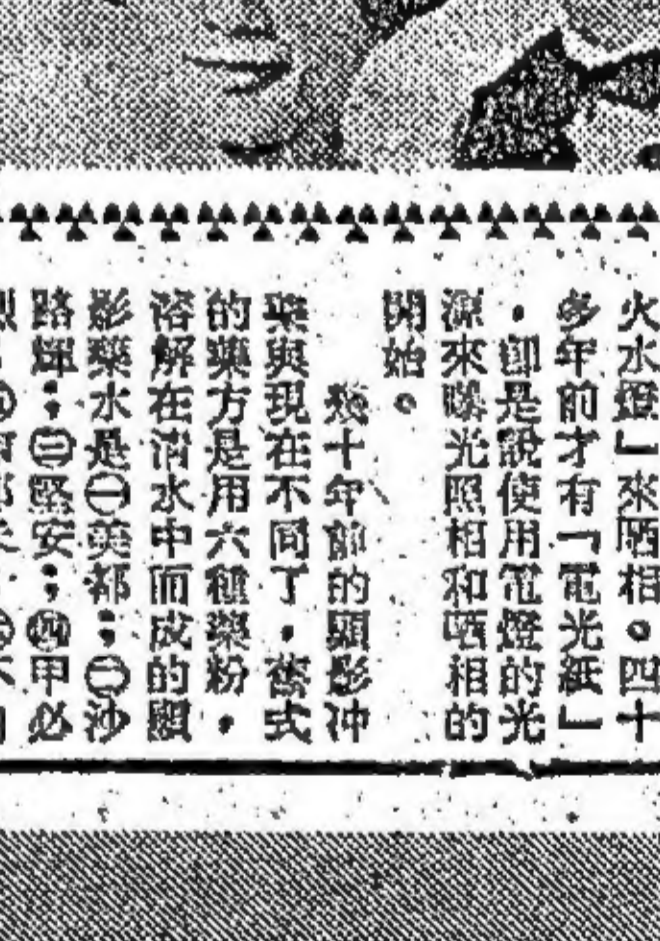 火水燈」來晒相。四十
多年前才有「電光紙」
，卽是說使用電燈的光
源來曝光照相和晒相的
開始。
幾十年前的顯影冲
藥與現在不同了，舊式
的藥方是用六種藥粉，
溶解在清水中而成的顯
影藥水是㊀美都；㊁沙
路輝；㊂堅安；㊃甲必